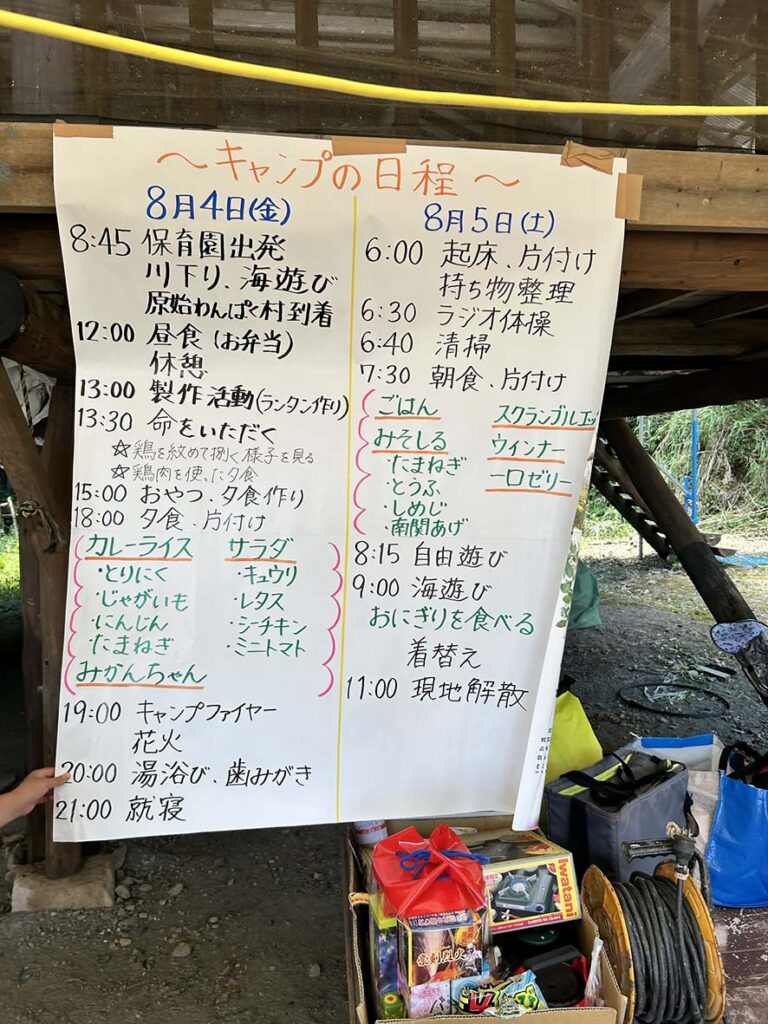 ～キャンプの日程～
8月4日(金)
8:45 保育園出発
川下り、海遊び
原始わんぱく村到着
12:00 昼食(お弁当)
休憩
13:00 製作活動(ランタン作り)
13:30 命をいただく
☆鶏を絞めて捌く様子を見る
☆鶏肉を使った夕食
15:00 おやつ、夕食作り
18:00 夕食、片付け
カレーライス
・とりにく
・じゃがいも
・にんじん
・たまねぎ
みかんちゃん
サラダ
・キュウリ
・レタス
・シーチキン
・ミニトマト
19:00 キャンプファイヤー
花火
20:00 湯浴び、歯みがき
21:00 就寝
8月5日(土)
6:00 起床、片付け
持ち物整理
6:30 ラジオ体操
6:40 清掃
7:30 朝食、片付け
ごはん
みそしる
・たまねぎ
・とうふ
・しめじ
・南関あげ
スクランブルエッ
ウィンナー
一口ゼリー
8:15 自由遊び
9:00 海遊び
おにぎりを食べる
着替え
11:00 現地解散
Iwatani